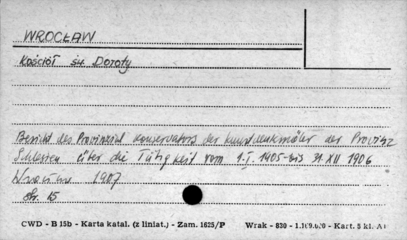 WROCŁAW
Kościół św. Doroty
Bericht des Provinzial Konservators der Kunstdenkmäler der Provinz
Schlesien über die Tätigkeit vom 1.I.1905-bis 31.XII 1906
1907
str. 15
CWD - B 15b - Karta katal. (z liniat.) - Zam. 1625/P Wrak - 830 - Kart. 5 kl. A1